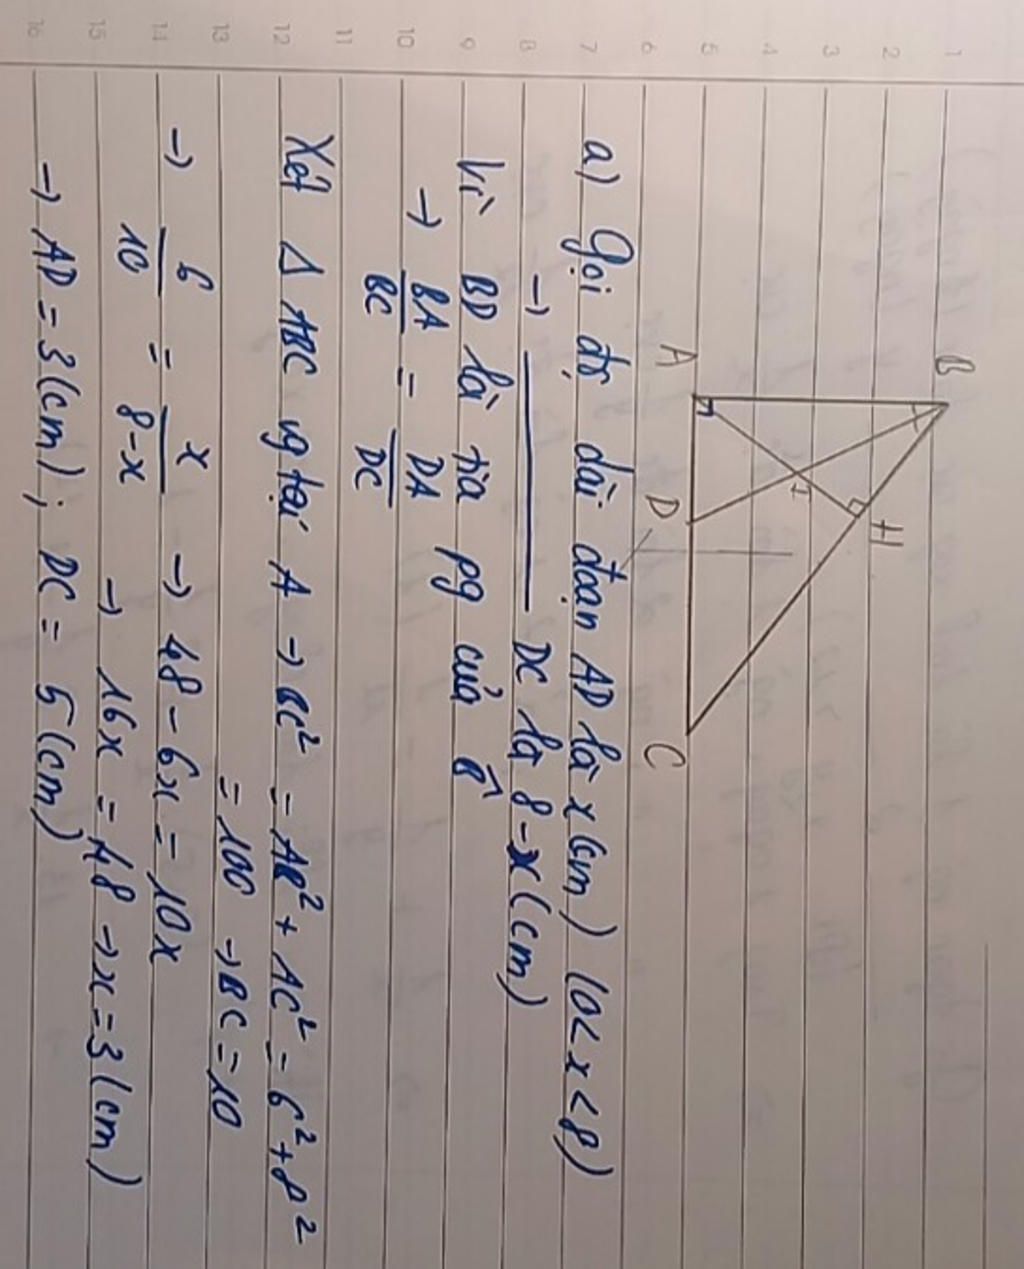 1
2
3
4
5
6
7
8
9
10
11
12
13
14
15
16
B
H
I
A
D
C
a) Gọi độ dài đoạn AD là x (cm) (0 < x < 8)
→ ——— DC là 8 - x (cm)
Vì BD là tia pg của B̂
→ BA/BC = DA/DC
Xét Δ ABC vg tại A → BC² = AB² + AC² = 6² + 8²
= 100 → BC = 10
→ 6/10 = x/8-x → 48 - 6x = 10x
→ 16x = 48 → x = 3 (cm)
→ AD = 3 (cm) ; DC = 5 (cm)